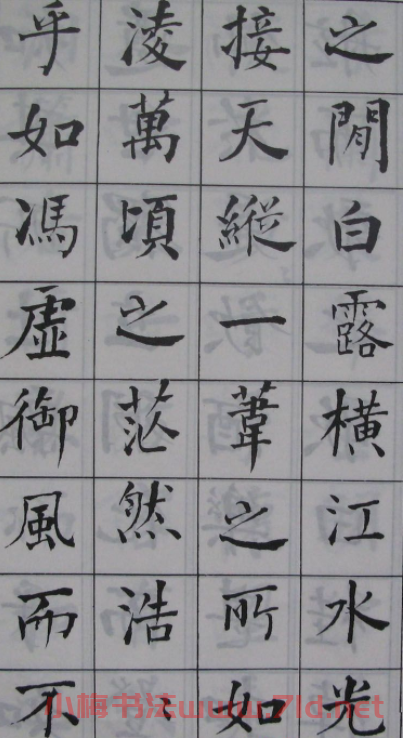 之閒白露横江水光
接天縱一葦之所如
淩萬頃之茫然浩〻
乎如馮虛御風而不
小梅书法www.7ld.net